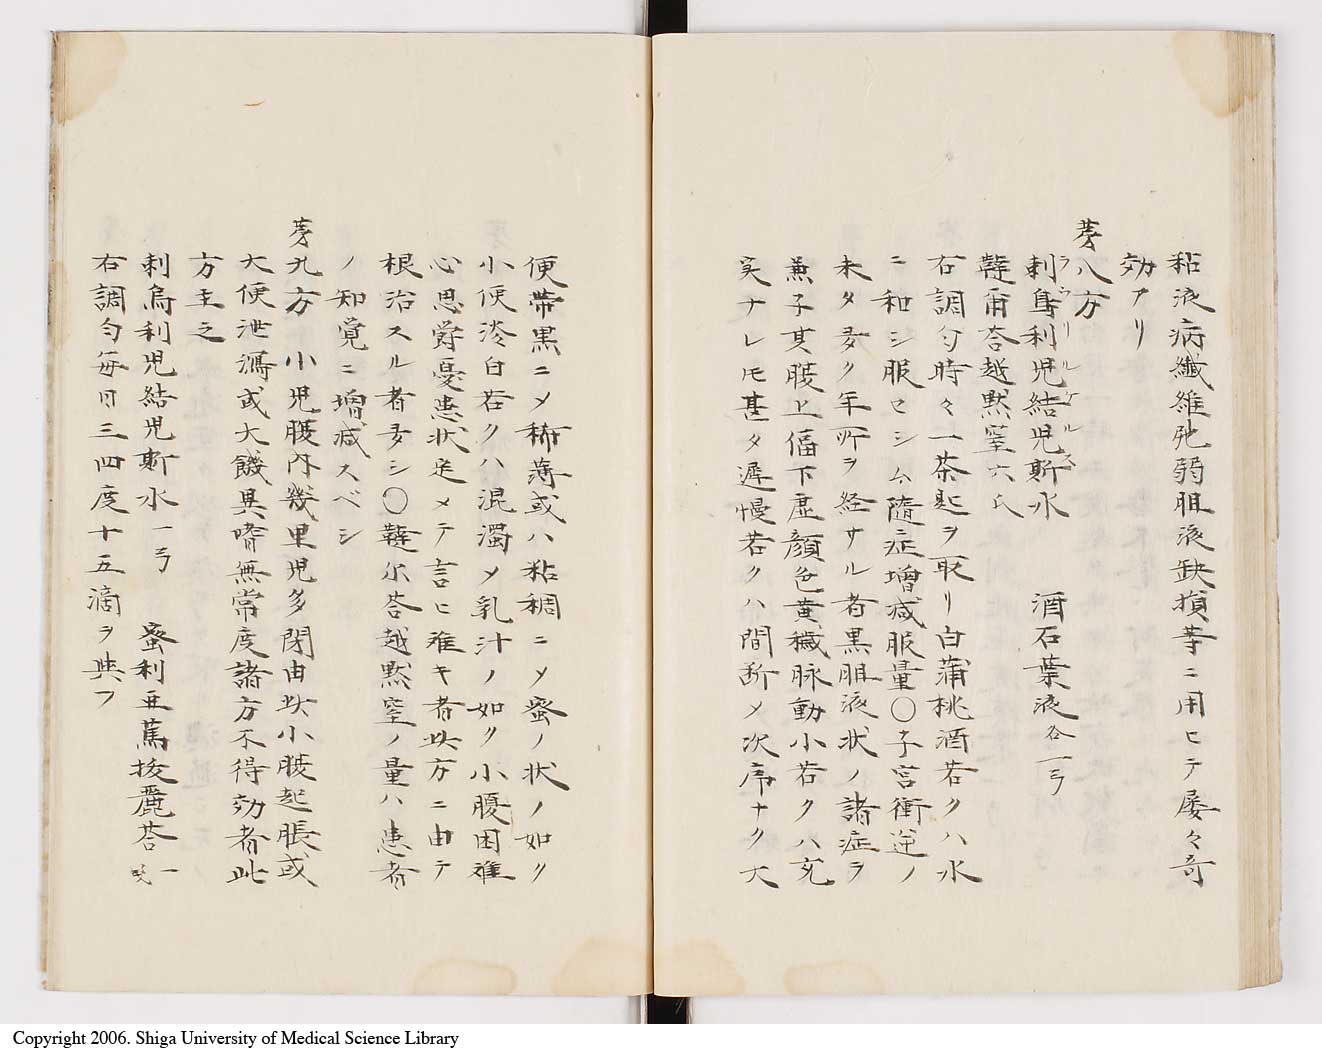 粘液病纖維弛弱胆液缺損等ニ用ヒテ屡々奇
効アリ
苐八方
剌烏利児結児斯水 酒石葉液各一弓
ラウリルケルス
鞑甭荅越黙窒六氏
右調匀時々一茶匙ヲ取リ白蒲桃酒若クハ水
ニ和シ服セシム隨症増减服量〇子宮衝逆ノ
未タ多ク年所ヲ経サル者黒胆液状ノ諸症ヲ
兼子其腹上偪下虚顔色黄穢脉動小若クハ充
実ナレ𪜈甚タ遅慢若クハ間斷〆次序ナク大
便帶黒ニ〆稀薄或ハ粘稠ニ〆蜜ノ状ノ如ク
小便淡白若クハ混濁〆乳汁ノ如ク小腹困難
心思欝憂患状定メテ言ヒ難キ者此方ニ由テ
根治スル者多シ〇鞑尓荅越黙窒ノ量ハ患者
ノ知覚ニ増减スベシ
苐九方 小児腹内幾里児多閉由此小腹起脹或
大便泄瀉或大饑異嗜無常度諸方不得効者此
方主之
剌烏利児結児斯水一弓 蜜利亜篤拔麗荅一
右調匀毎日三四度十五滴ヲ與フ